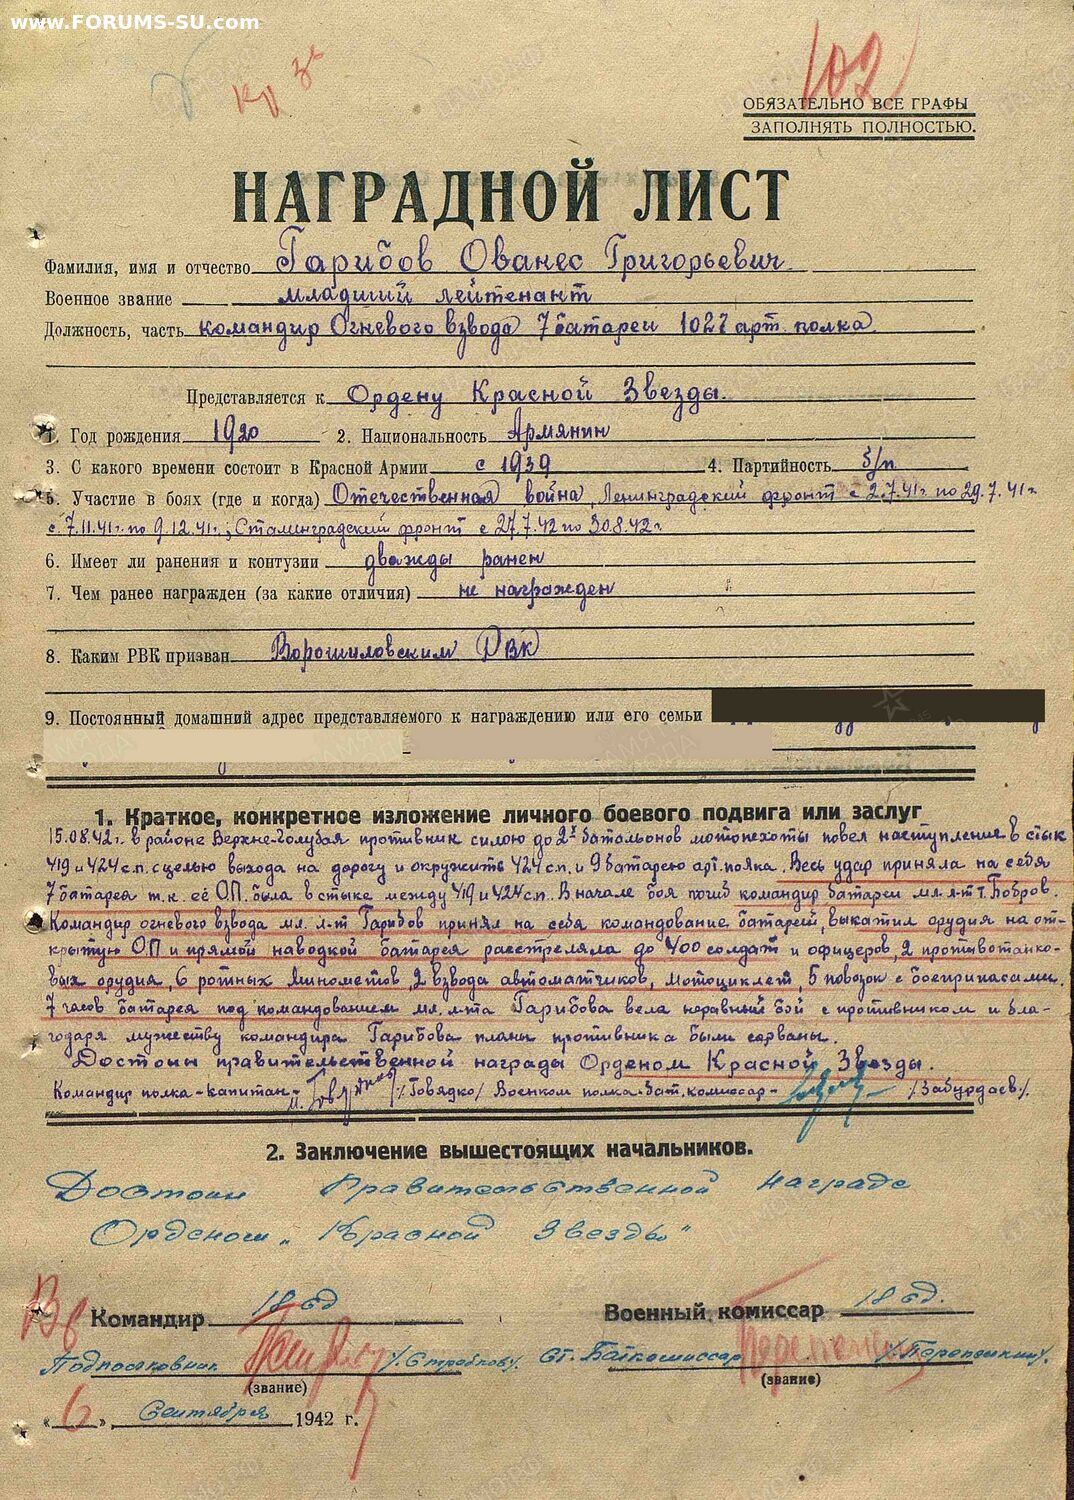 www.FORUMS-SU.com
102
ОБЯЗАТЕЛЬНО ВСЕ ГРАФЫ
ЗАПОЛНЯТЬ ПОЛНОСТЬЮ.
НАГРАДНОЙ ЛИСТ
Фамилия, имя и отчество Гарибов Ованес Григорьевич
Военное звание младший лейтенант
Должность, часть командир Огневого взвода 7 батареи 1027 арт. полка
Представляется к Ордену Красной Звезды.
1. Год рождения 1920 2. Национальность Армянин
3. С какого времени состоит в Красной Армии с 1939 4. Партийность б/п
5. Участие в боях (где и когда) Отечественная война, Ленинградский фронт с 2.7.41г. по 29.7.41г.
с 7.11.41г. по 9.12.41г., Сталинградский фронт с 27.7.42 по 30.8.42г.
6. Имеет ли ранения и контузии дважды ранен
7. Чем ранее награжден (за какие отличия) не награжден
8. Каким РВК призван Ворошиловским РВК
9. Постоянный домашний адрес представляемого к награждению или его семьи
1. Краткое, конкретное изложение личного боевого подвига или заслуг
15.08.42г. в районе Верхне-Голубая противник силою до 2х батальонов мотопехоты повел наступление в стык
419 и 424 с.п. с целью выхода на дорогу и окружить 424 с.п. и 9 батарею арт. полка. Весь удар приняла на себя
7 батарея т.к. её О.П. была в стыке между 419 и 424 с.п. В начале боя погиб командир батареи мл. л-т т. Бобров.
Командир огневого взвода мл. л-т Гарибов принял на себя командование батареей, выкатил орудия на от-
крытую ОП и прямой наводкой батарея расстреляла до 400 солдат и офицеров, 2 противотанко-
вых орудия, 6 ротных минометов, 2 взвода автоматчиков, мотоциклет, 5 повозок с боеприпасами.
7 часов батарея под командованием мл. л-та Гарибова вела неравный бой с противником и бла-
годаря мужеству командира Гарибова планы противника были сорваны.
Достоин правительственной награды Орденом Красной Звезды.
Командир полка - капитан - /Говядко/ Военком полка - бат. комиссар - /Забурдаев/.
2. Заключение вышестоящих начальников.
Достоин Правительственной награде
Орденом „Красной Звезды"
Командир 18 сд Военный комиссар 18 сд.
Подполковник /Стрелков/. Ст. Бат.комиссар /Перепелкин/.
(звание) (звание)
«6» Сентября 1942 г.